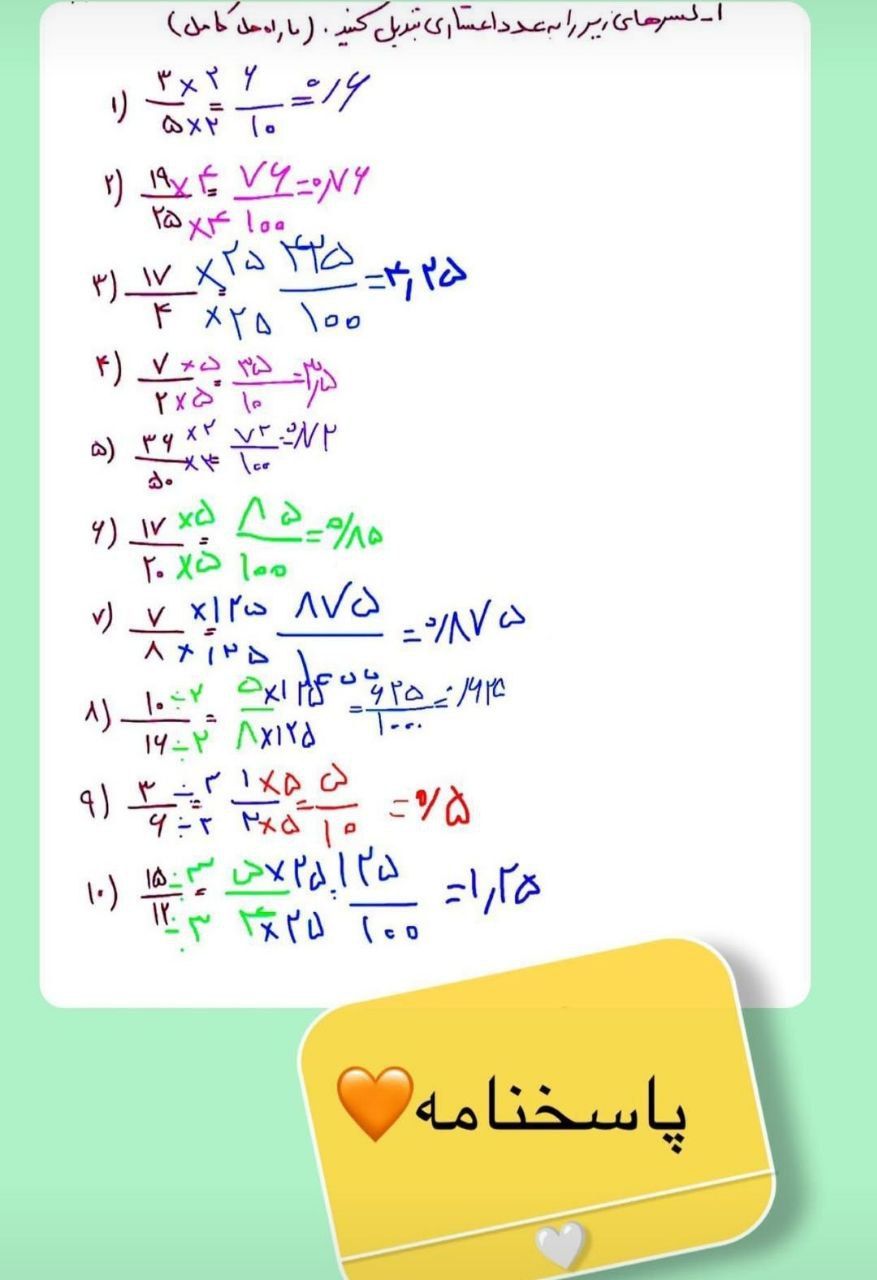 ۱ـ کسرهای زیر را به عدد اعشاری تبدیل کنید. (با راه حل کامل)
۱) ۳×۲/۵×۲ = ۶/۱۰ = ۰/۶
۲) ۱۹×۴/۲۵×۴ = ۷۶/۱۰۰ = ۰/۷۶
۳) ۱۷×۲۵/۴×۲۵ = ۴۲۵/۱۰۰ = ۴,۲۵
۴) ۷×۵/۲×۵ = ۳۵/۱۰ = ۳,۵
۵) ۳۶×۲/۵۰×۲ = ۷۲/۱۰۰ = ۰/۷۲
۶) ۱۷×۵/۲۰×۵ = ۸۵/۱۰۰ = ۰/۸۵
۷) ۷×۱۲۵/۸×۱۲۵ = ۸۷۵/۱۰۰۰ = ۰/۸۷۵
۸) ۱۰÷۲/۱۶÷۲ = ۵×۱۲۵/۸×۱۲۵ = ۶۲۵/۱۰۰۰ = ۰/۶۲۵
۹) ۳÷۳/۶÷۳ = ۱×۵/۲×۵ = ۵/۱۰ = ۰/۵
۱۰) ۱۵÷۳/۱۲÷۳ = ۵×۲۵/۴×۲۵ = ۱۲۵/۱۰۰ = ۱,۲۵
پاسخنامه🧡
🤍